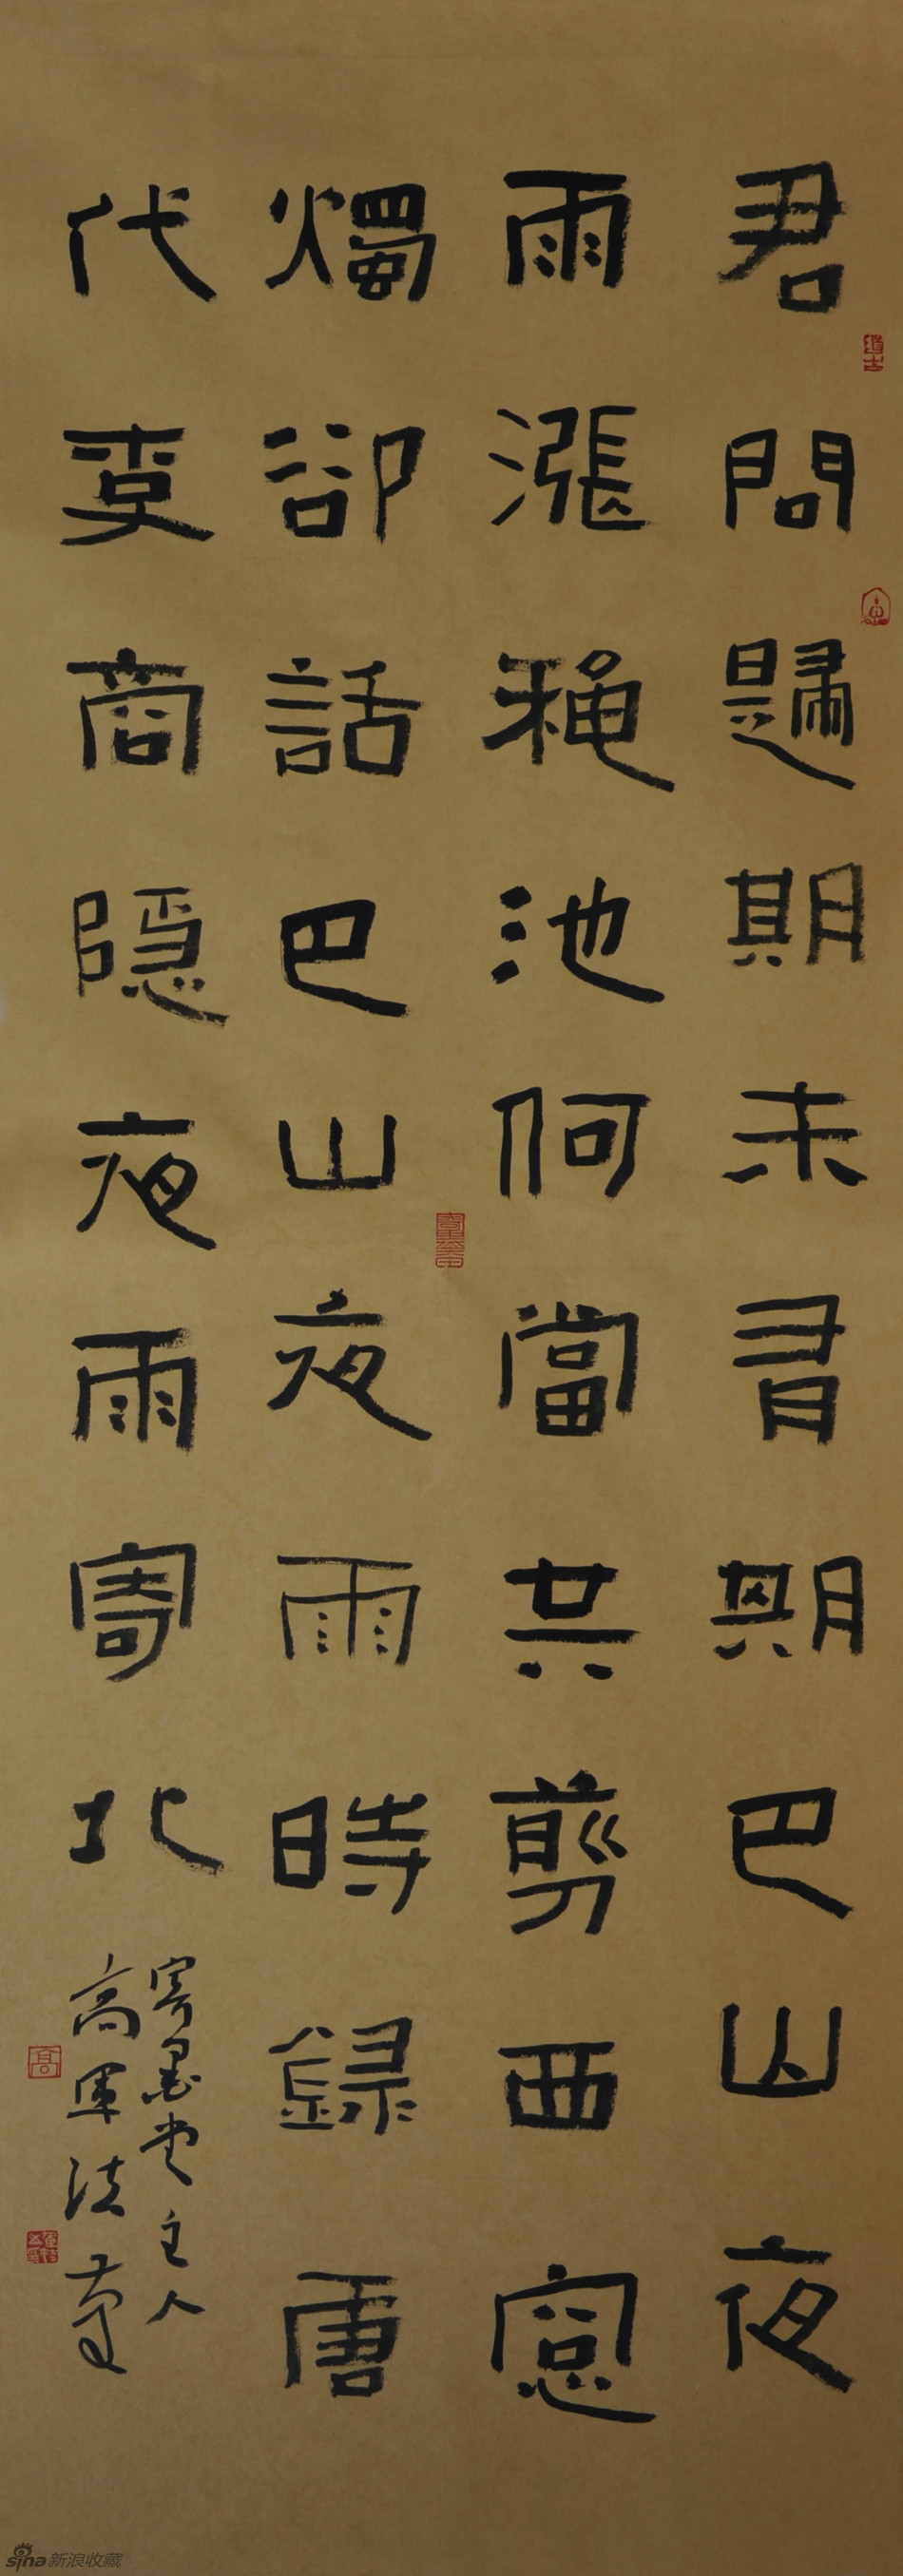 君問歸期未有期巴山夜
雨漲穐池何當共剪西窓
燭卻話巴山夜雨時錄唐
代李商隱夜雨寄北
寄墨堂主人
高軍法書
高
sina新浪收藏